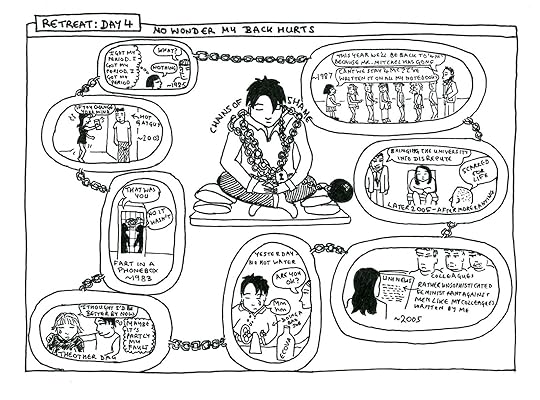 RETREAT: DAY 4
NO WONDER MY BACK HURTS
I GOT MY
PERIOD. I
GOT MY
PERIOD. I
GOT MY
PERIOD...
WHAT?
NOTHING
CHAINS OF
SHAME
THIS YEAR WE'LL BE BACK TO
BECAUSE MR. MITCHELL HAS GONE
CAN'T WE STAY
WRITTEN IT ON ALL MY NOTEBOOKS
~1987
IF YOU CHANGE
YOUR MIND
HOT
GAY GUY
~2003
BRINGING THE UNIVERSITY
INTO DISREPUTE
SCARRED
FOR
LIFE
LATER 2005 - AFTER MORE RANTING
THAT WAS
YOU
NO IT
WASN'T
FART IN A
PHONEBOX
~1983
YESTERDAY
NO HOT WATER
ARE YOU
OK?
Mm
hm
COLLEAGUES
UNI NEWS
RATHER UNSOPHISTICATED
FEMINIST RANT AGAINST
MEN LIKE MY COLLEAGUES
WRITTEN BY ME
~2005
I THOUGHT I'D BE
BETTER BY NOW
MAYBE
IT'S
PARTLY
MY
FAULT
THE OTHER DAY